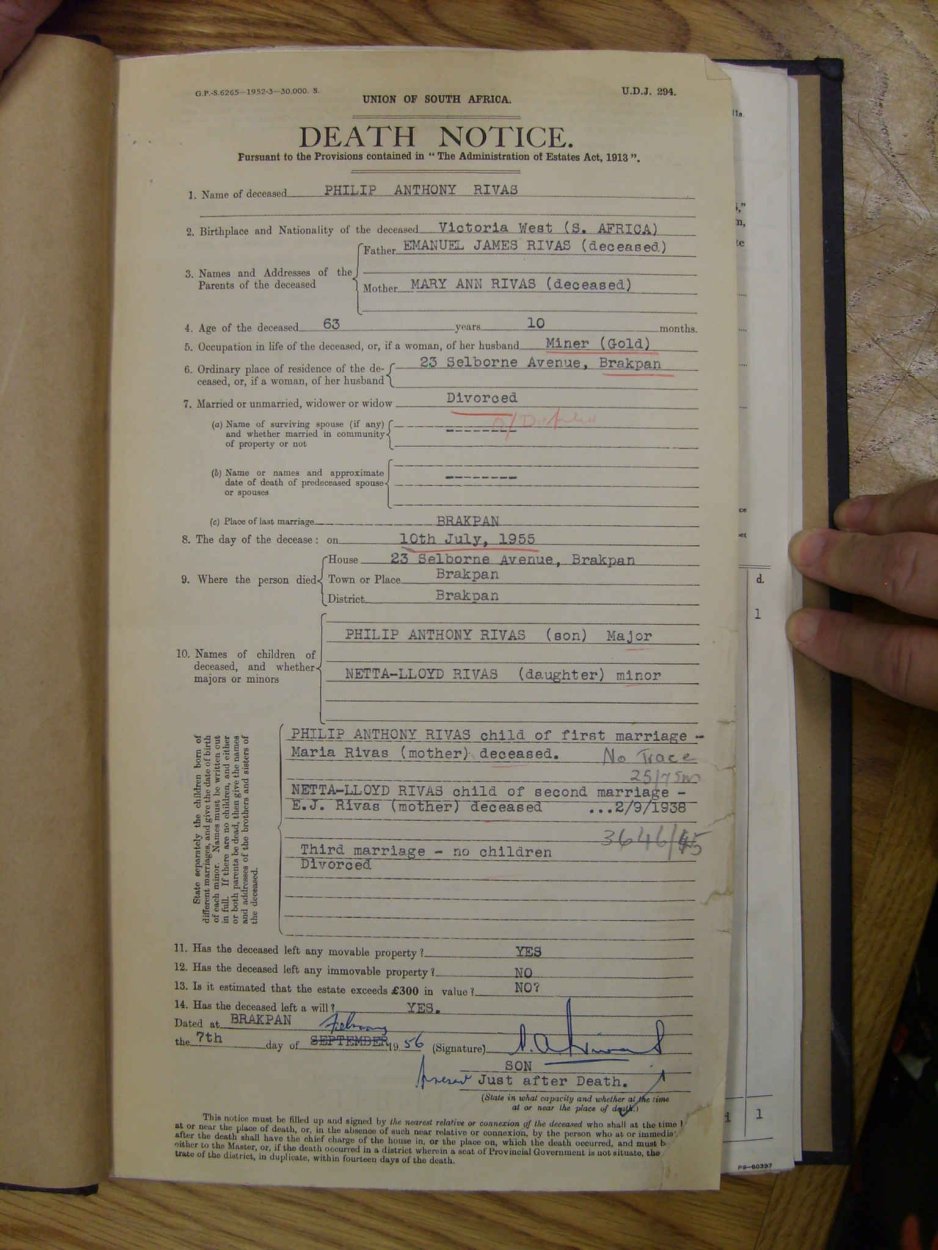 G.P.-S.6265—1952-3—30,000. S.
U.D.J. 294.
UNION OF SOUTH AFRICA.
DEATH NOTICE.
Pursuant to the Provisions contained in "The Administration of Estates Act, 1913".
1. Name of deceased PHILIP ANTHONY RIVAS
2. Birthplace and Nationality of the deceased Victoria West (S. AFRICA)
3. Names and Addresses of the Parents of the deceased
Father EMANUEL JAMES RIVAS (deceased)
Mother MARY ANN RIVAS (deceased)
4. Age of the deceased 63 years 10 months.
5. Occupation in life of the deceased, or, if a woman, of her husband Miner (Gold)
6. Ordinary place of residence of the de-
ceased, or, if a woman, of her husband
23 Selborne Avenue, Brakpan
7. Married or unmarried, widower or widow Divorced
(a) Name of surviving spouse (if any)
and whether married in community
of property or not
--------
(b) Name or names and approximate
date of death of predeceased spouse
or spouses
--------
(c) Place of last marriage BRAKPAN
8. The day of the decease: on 10th July, 1955
9. Where the person died
House 23 Selborne Avenue, Brakpan
Town or Place Brakpan
District Brakpan
10. Names of children of
deceased, and whether
majors or minors
PHILIP ANTHONY RIVAS (son) Major
NETTA-LLOYD RIVAS (daughter) minor
State separately the children born of
different marriages, and give the date of birth
of each minor. Names must be written out
in full. If there are no children, and either
or both parents be dead, then give the names
and addresses of the brothers and sisters of
the deceased.
PHILIP ANTHONY RIVAS child of first marriage -
Maria Rivas (mother) deceased. No Trace
25/7
NETTA-LLOYD RIVAS child of second marriage -
E.J. Rivas (mother) deceased ...2/9/1938
3646/45
Third marriage - no children
Divorced
11. Has the deceased left any movable property? YES
12. Has the deceased left any immovable property? NO
13. Is it estimated that the estate exceeds £300 in value? NO?
14. Has the deceased left a will? YES.
Dated at BRAKPAN
February
the 7th day of SEPTEMBER 1956 (Signature)
SON
present Just after Death.
(State in what capacity and whether at the time
at or near the place of death.)
This notice must be filled up and signed by the nearest relative or connexion of the deceased who shall at the time
at or near the place of death, or, in the absence of such near relative or connexion, by the person who at or immedia
after the death shall have the chief charge of the house in, or the place on, which the death occurred, and must b
either to the Master, or, if the death occurred in a district wherein a seat of Provincial Government is not situate, the
trate of the district, in duplicate, within fourteen days of the death.
d.
1
1
PS-60397